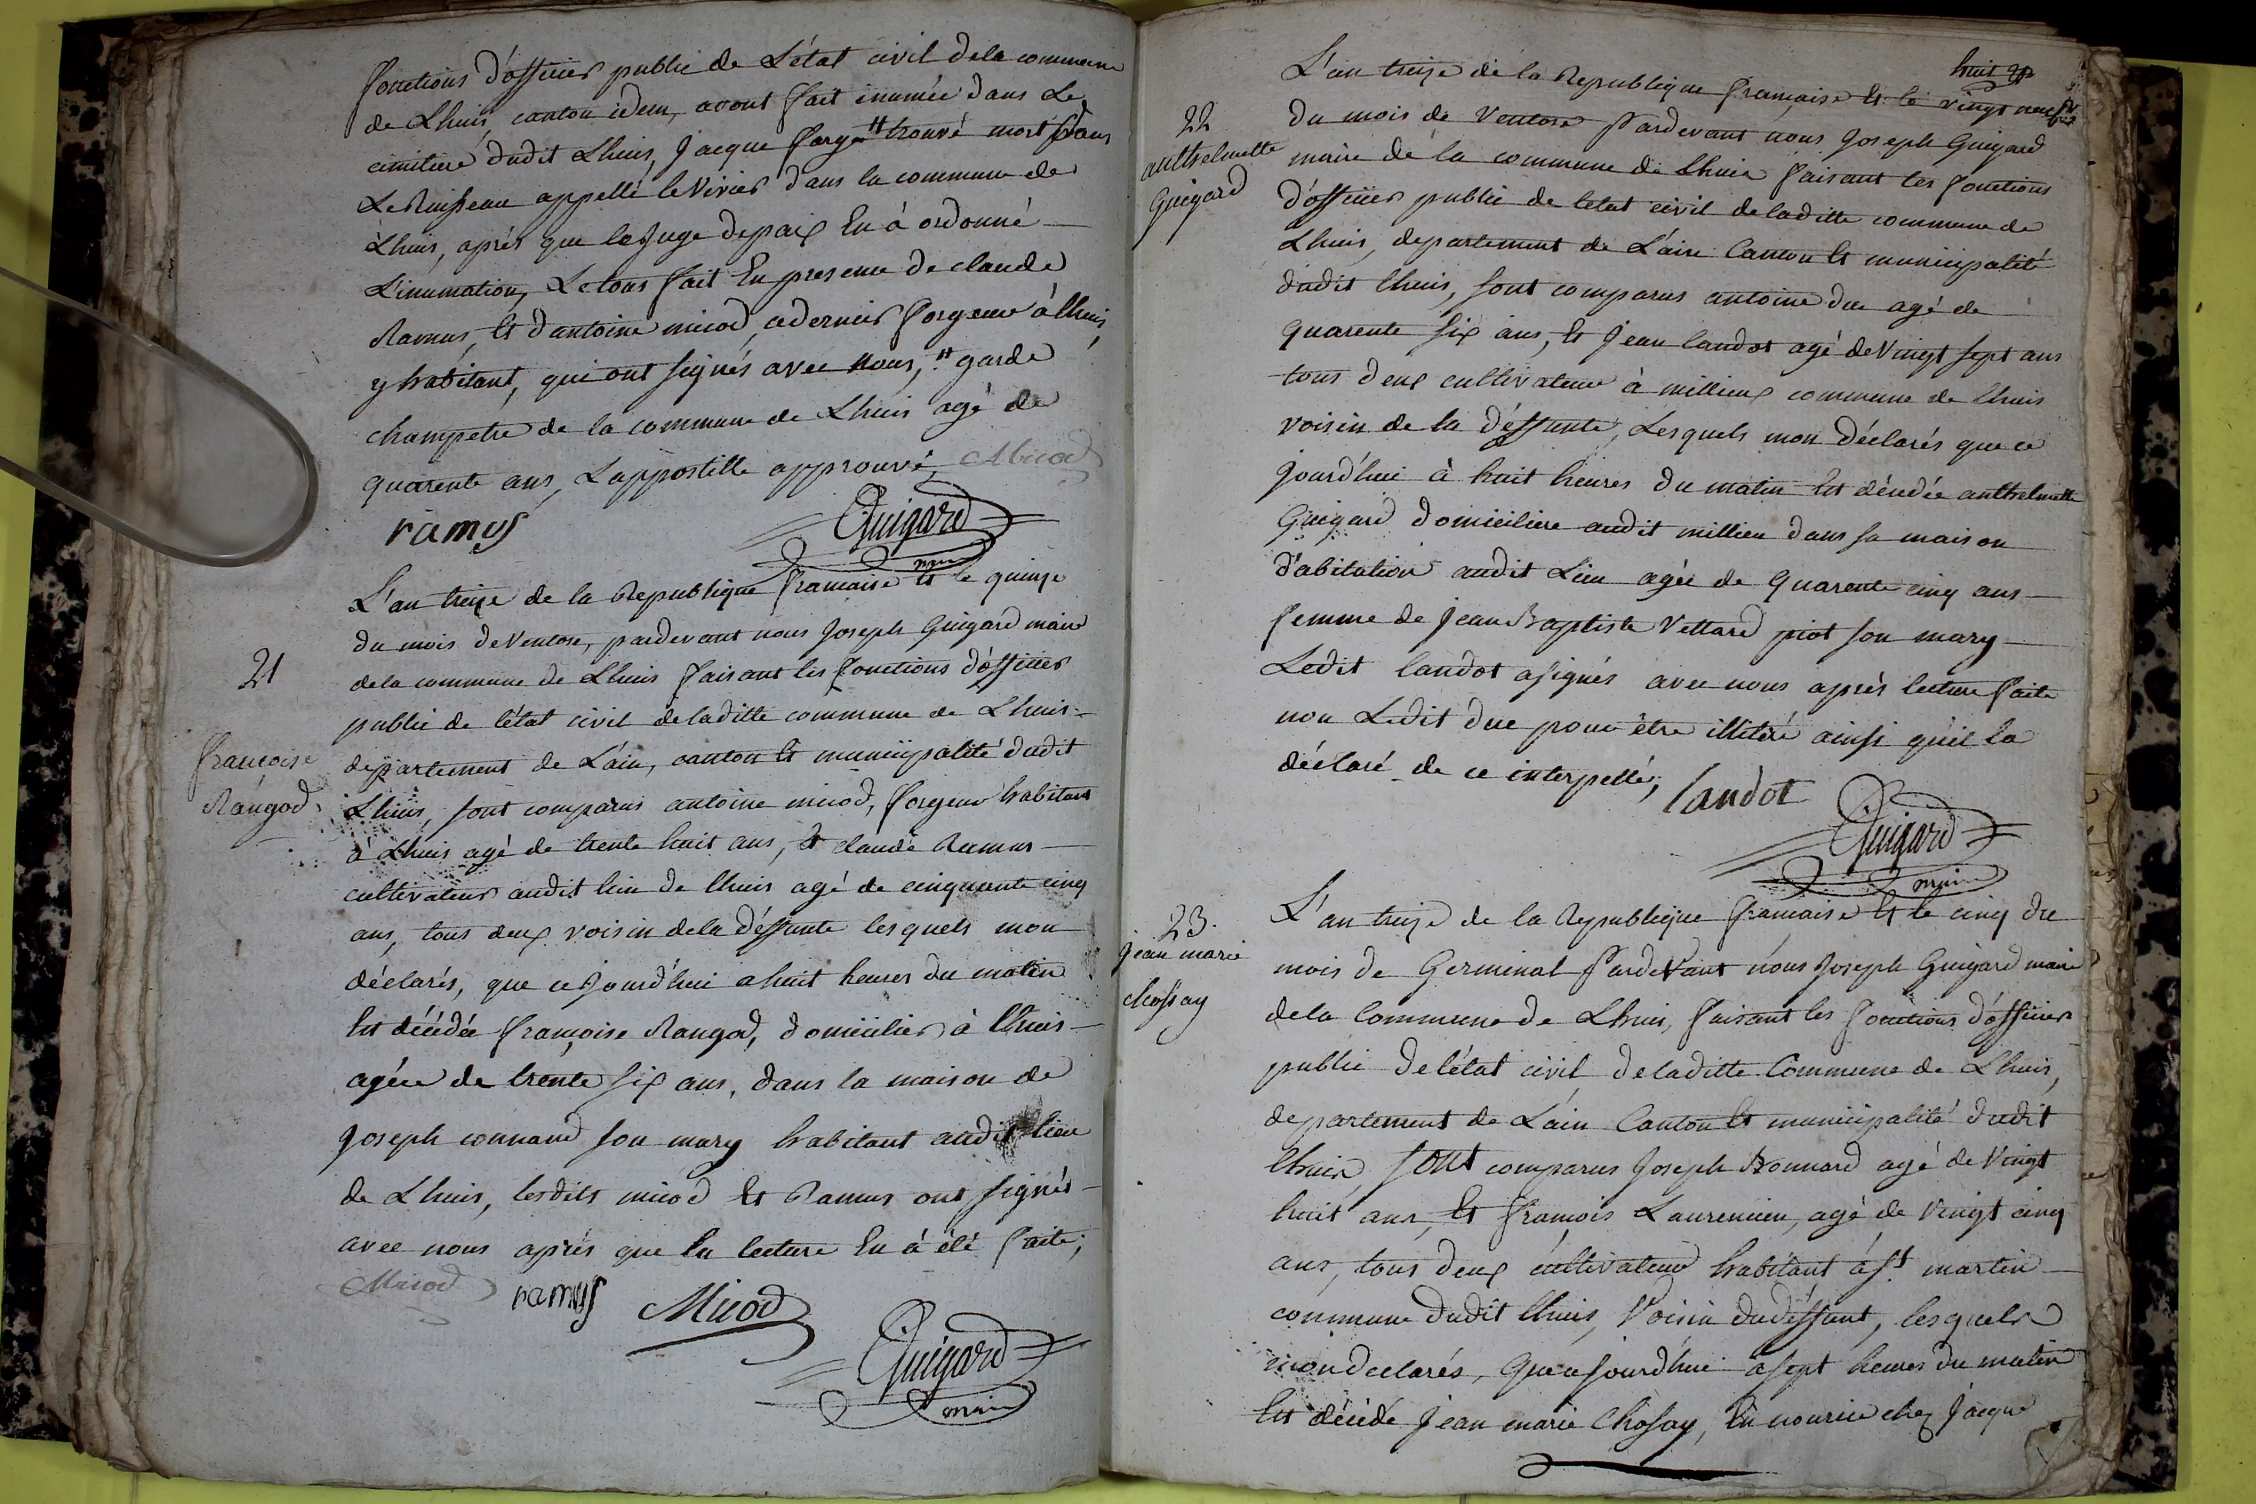 fonctions d'officier public de L'état civil dela commune
de Lhuis, canton idem, avont fait inumée dans Le
cimitiere dudit Lhuis, Jacque farge # trouvé mort dans
Le Ruisseau appellé le Vivier dans la commune de
Lhuis, aprés que le Juge depaix En à ordonné
L'inumation, Le tous fait En presence de claude
Ramus, Et d'antoine micod, cedernier forgeur à lhuis,
y habitant, qui ont signés avec Nous, # garde
champetre de la commune de Lhuis agé de
quarente ans, Lappostille approuvé,
ramus Guigard
maire
21
francoise
Rangod
L'an treize de la Republique francaise Et le quinze
du mois de Ventose, pardevant nous Joseph Guigard maire
dela commune de Lhuis faisant les fonctions d'officier
public de l'état civil deladitte commune de Lhuis
departement de L'ain, canton Et municipalité dudit
Lhuis, sont comparus antoine micod, forgeur habitant
à Lhuis agé de trente huit ans, Et claude Ramus
cultivateur audit lieu de lhuis agé de cinquante cinq
ans, tous deux voisin dela déffunte lesquels mon
déclarés, que ce Jourd'hui a huit heures du matin
Est décédée françoise Rangod, domicilier à lhuis
agée de trente six ans, dans la maison de
Joseph connand son mary habitant audit lieu
de Lhuis, lesdits micod Et Ramus ont signés
avec nous aprés que la lecture En à été faite;
ramus Micod
Guigard
maire
22
anthelmette
Guigard
huit
L'an treize de la Republique francaise Et le vingt neuf
du mois de Ventose Pardevant nous Joseph Guigard
maire de la commune de lhuis faisant les fonctions
d'officier public de letat civil deladitte commune de
Lhuis, departement de L'ain Canton Et municipalité
dudit lhuis, sont comparus antoine duc agé de
quarente six ans, Et Jean landot agé de Vingt sept ans
tous deux cultivateur à millieux commune de lhuis
voisin de la déffunte, Lesquels mon déclarés que ce
jourd'hui à huit heures du matin Est décédée anthelmette
Guigard domiciliere audit millieu dans sa maison
d'abitation audit Lieu agée de quarente cinq ans
femme de jean Baptiste Vettard piot son mary
Ledit landot asignés avec nous aprés lecture faite
non Ledit duc pour être illitéré ainsi qu'il la
déclaré de ce interpellé;
landot
Guigard
maire
23.
jean marie
chossay
L'an treize de la Republique francaise Et le cinq du
mois de Germinal Pardevant nous Joseph Guigard maire
dela Commune de Lhuis, faisant les fonctions d'officier
public de l'état civil deladitte Commune de Lhuis,
departement de L'ain Canton Et municipalité dudit
lhuis, sont comparus Joseph Bonnard agé de Vingt
huit ans, Et francois Laurencien, agé de Vingt cinq
ans, tous deux cultivateur habitant à St martin
commune dudit lhuis, Voisin dudéffunt, lesquels
mon declarés, Que ce Jourd'hui a sept heures du matin
Est décédé Jean marie Chosay, En nourice chez Jacque